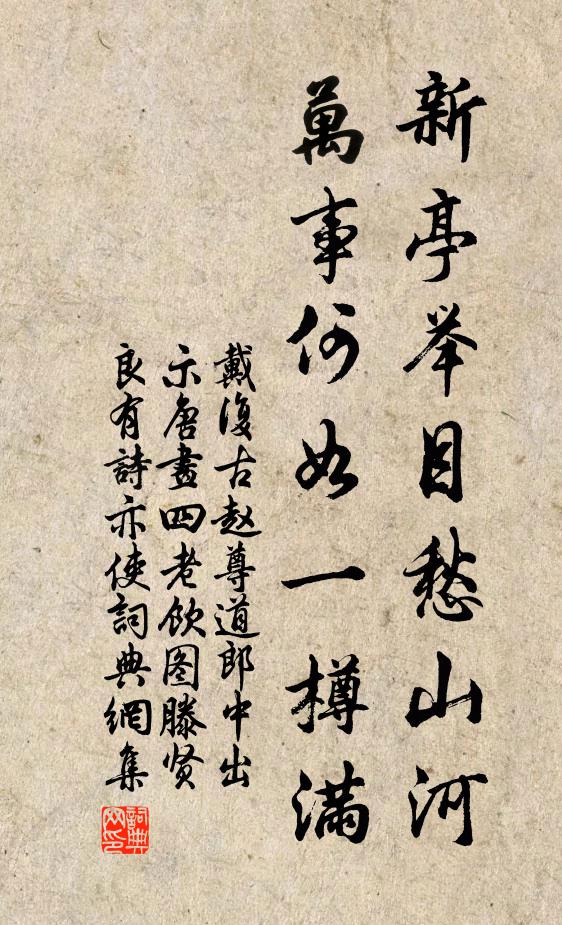 新亭举目愁山河
萬事何如一樽满
戴復古赵尊道郎中出
示唐畫四老饮图滕贤
良有詩亦使詞典網集
詞典网印